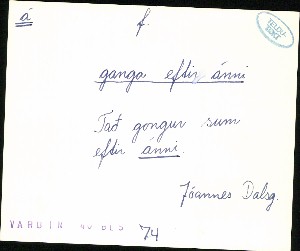 á f.
ganga eftir ánni
Tað gongur sum
eftir ánni.
Jóannes Dalsg.
VARÐIN 40 '74